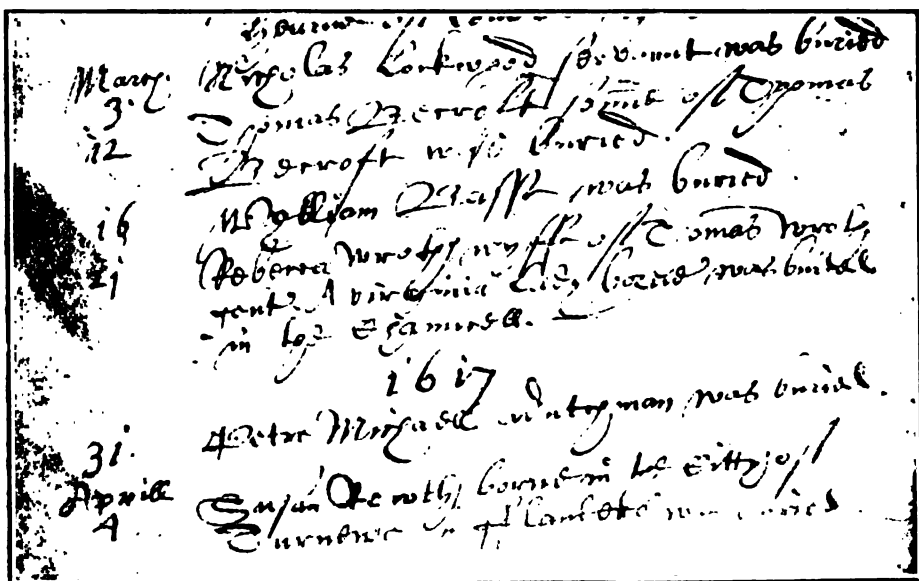 March Nicholas Lockwood servant was buried
3.
Thomas Becroft sonne off Thomas
12 Becroft was buried.
16 Wylliam was buried.
21 Rebecca Wrothe wyffe off Thomas Wroth
gent. A Virginia Lady borne was buried
in the Chauncell.
1617
31. Petre Michaell a dutchman was buried.
Aprill Susan borne in the Citty off
4 in was buried